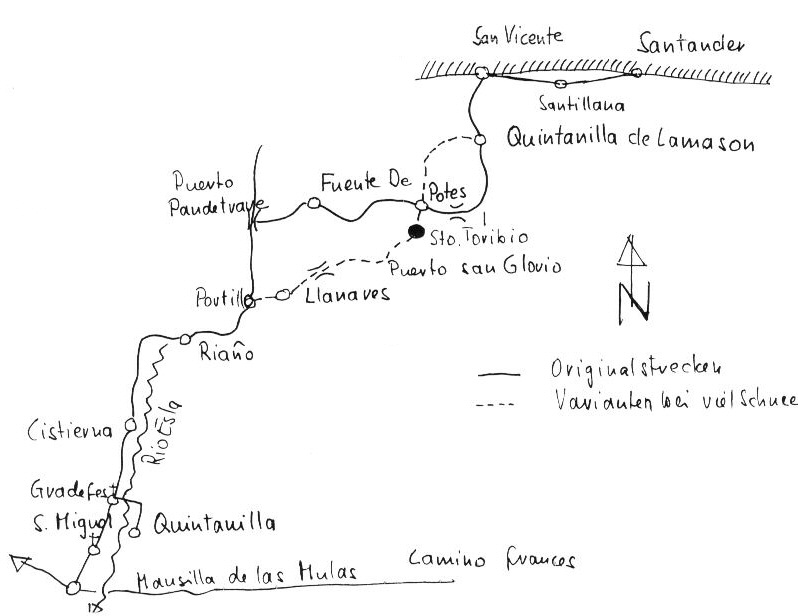 San Vicente
Santander
Santillana
Quintanilla de Lamason
Puerto
Pandetrave
Fuente De
Potes
Sto. Toribio
Puerto san Glorio
Portillo
Llanaves
Riaño
N
Originalstrecken
Varianten bei viel Schnee
Cistierna
Rio Esla
Gradefest
S. Migual
Quintanilla
Camino frances
Mansilla de las Mulas